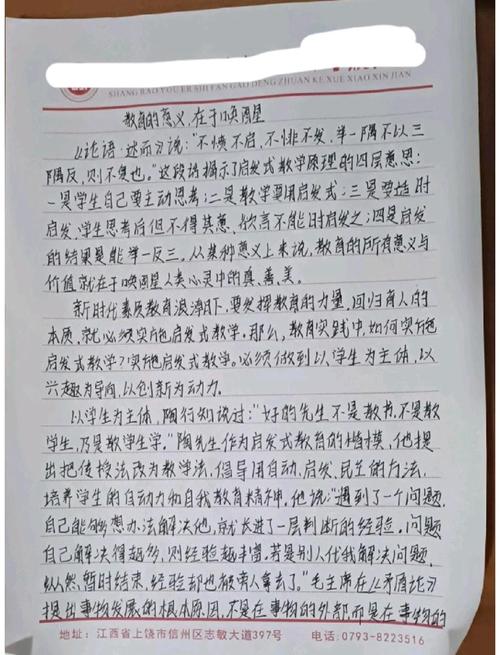 SHANG RAO YOU ER SHI FAN GAO DENG ZHUAN KE XUE XIAO XIN JIAN
教育的意义,在于唤醒
《论语·述而》说:"不愤不启,不悱不发,举一隅不以三
隅反,则不复也。"这段话揭示了启发式教学原理的四层意思:
一是学生自己要主动思考;二是教学要用启发式;三是要适时
启发,学生思考后但不得其意,欲言不能时启发之;四是启发
的结果是能举一反三。从某种意义上来说,教育的所有意义与
价值就在于唤醒人类心灵中的真、善、美。
新时代素质教育浪潮下,要发挥教育的力量,回归育人的
本质,就必须实施启发式教学。那么,教育实践中,如何实施
启发式教学?实施启发式教学。必须做到以学生为主体,以
兴趣为导向,以创新为动力.
以学生为主体,陶行知说过:"好的先生不是教书,不是教
学生,乃是教学生学。"陶先生作为启发式教育的楷模,他提
出把传授法改为教学法,倡导用自动、启发、民主的方法,
培养学生的自动力和自我教育精神,他说:"遇到了一个问题,
自己能够想办法解决他,就长进了一层判断的经验。问题
自己解决得越多,则经验越丰富。若是别人代我解决问题,
纵然,暂时结束,经验却也被旁人拿去了。"毛主席在《矛盾论》
提出事物发展的根本原因,不是在事物的外部而是在事物的
地址:江西省上饶市信州区志敏大道397号 电话:0793-8223516